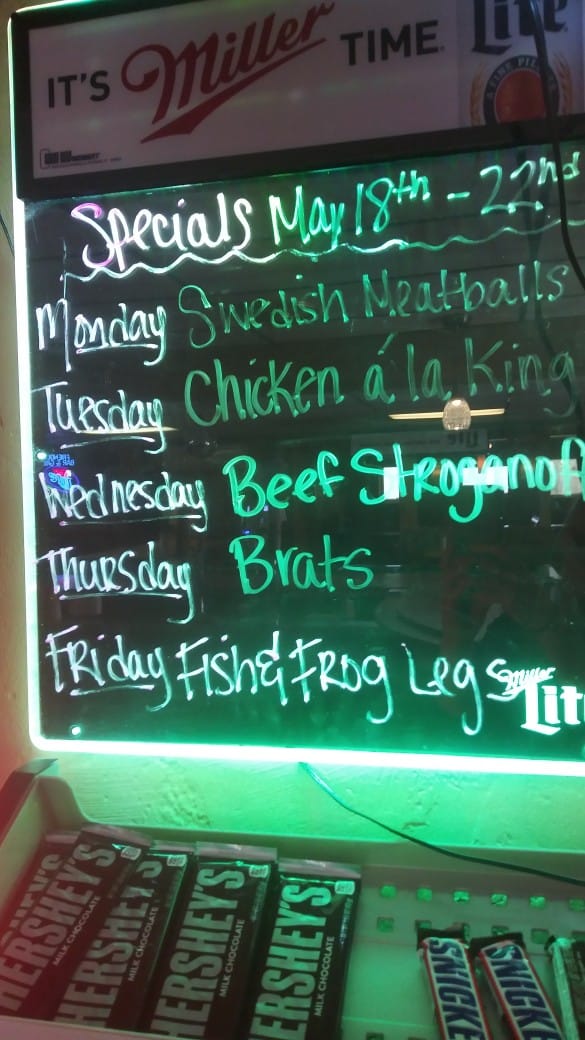 IT'S Miller TIME
Lite
A FINE PILS
Specials May 18th - 22nd
Monday Swedish Meatballs
Tuesday Chicken á la King
Wednesday Beef Stroganof
Thursday Brats
Friday Fish & Frog Legs
Miller
Lit
HERSHEY'S
MILK CHOCOLATE
HERSHEY'S
MILK CHOCOLATE
HERSHEY'S
MILK CHOCOLATE
HERSHEY'S
MILK CHOCOLATE
SNICKE
SNICKE